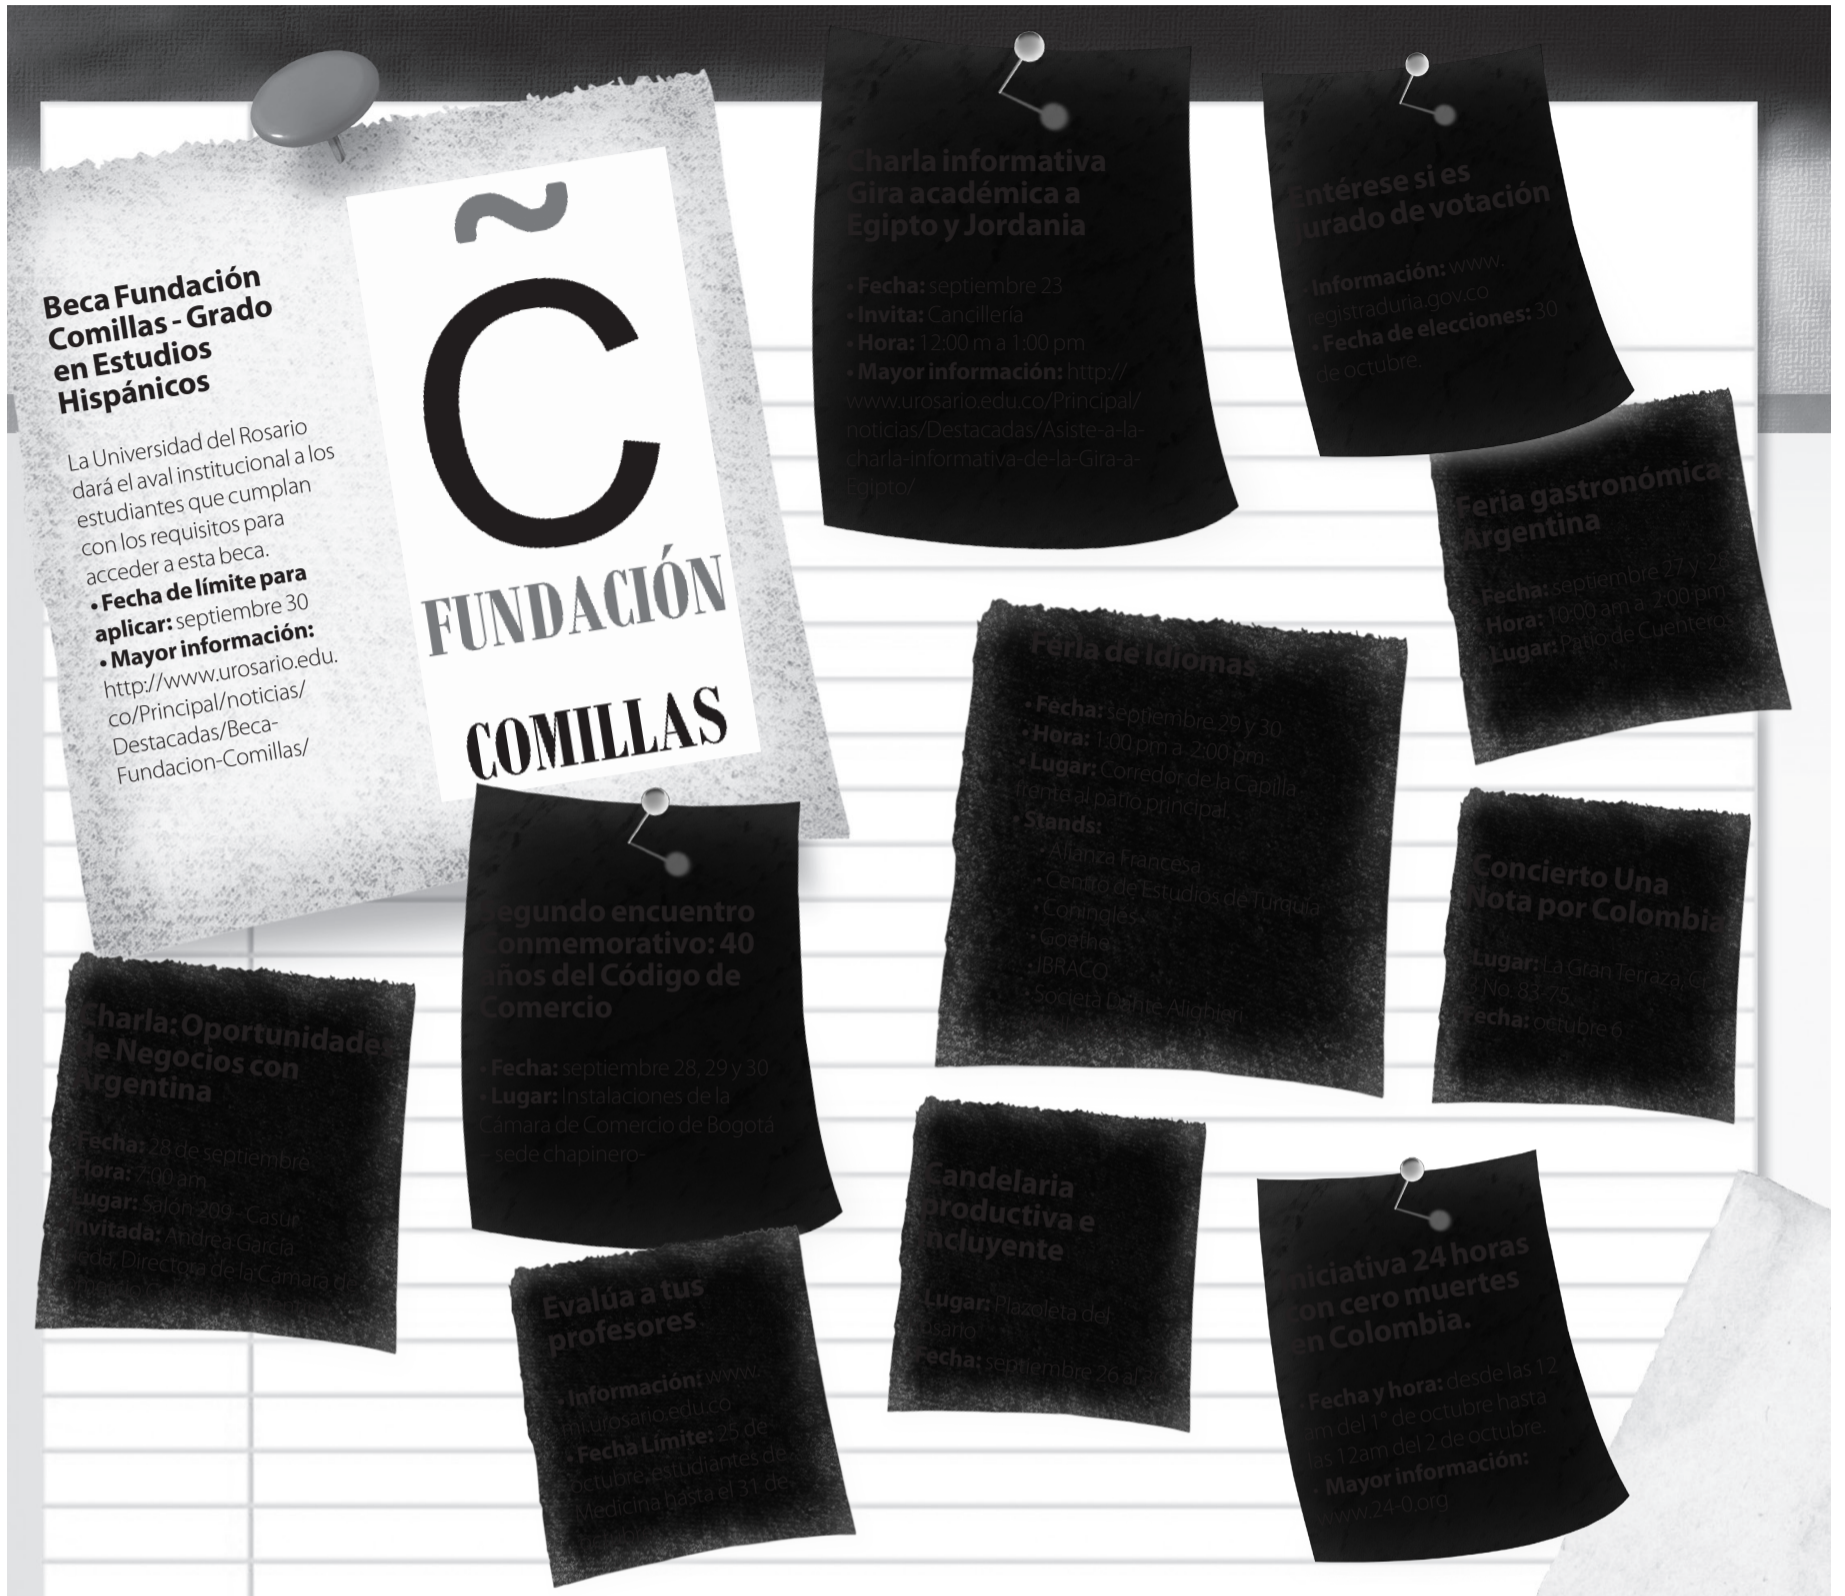 Beca Fundación
Comillas - Grado
en Estudios
Hispánicos
La Universidad del Rosario
dará el aval institucional a los
estudiantes que cumplan
con los requisitos para
acceder a esta beca.
• Fecha de límite para
aplicar: septiembre 30
• Mayor información:
http://www.urosario.edu.
co/Principal/noticias/
Destacadas/Beca-
Fundacion-Comillas/
C̃
FUNDACIÓN
COMILLAS
Charla informativa
Gira académica a
Egipto y Jordania
• Fecha: septiembre 23
• Invita: Cancillería
• Hora: 12:00 m a 1:00 pm
• Mayor información: http://
www.urosario.edu.co/Principal/
noticias/Destacadas/Asiste-a-la-
charla-informativa-de-la-Gira-a-
Egipto/
Entérese si es
jurado de votación
• Información: www.
registraduria.gov.co
• Fecha de elecciones: 30
de octubre.
Feria gastronómica
Argentina
Fecha: septiembre 27 y 28
Hora: 10:00 am a 2:00 pm
Lugar: Patio de Cuenteros
Feria de Idiomas
• Fecha: septiembre 29 y 30
• Hora: 1:00 pm a 2:00 pm
• Lugar: Corredor de la Capilla
frente al patio principal.
• Stands:
• Alianza Francesa
• Centro de Estudios de Turquía
• Coninglés
• Goethe
• IBRACO
• Società Dante Alighieri
Concierto Una
Nota por Colombia
Lugar: La Gran Terraza,
No. 83-75
Fecha: octubre 6
Segundo encuentro
conmemorativo: 40
años del Código de
Comercio
• Fecha: septiembre 28, 29 y 30
• Lugar: Instalaciones de la
Cámara de Comercio de Bogotá
- sede chapinero-
Charla: Oportunidades
de Negocios con
Argentina
Fecha: 28 de septiembre
Hora: 7:00 am
Lugar: Salón 209 - Casur
Invitada: Andrea García
Directora de la Cámara de
Evalúa a tus
profesores
• Información: www.
mi.urosario.edu.co
• Fecha Límite: 25 de
octubre, estudiantes de
Medicina hasta el 31 de
Candelaria
productiva e
incluyente
Lugar: Plazoleta del
Rosario
Fecha: septiembre 26 al
Iniciativa 24 horas
con cero muertes
en Colombia.
• Fecha y hora: desde las 12
am del 1° de octubre hasta
las 12am del 2 de octubre.
• Mayor información:
www.24-0.org